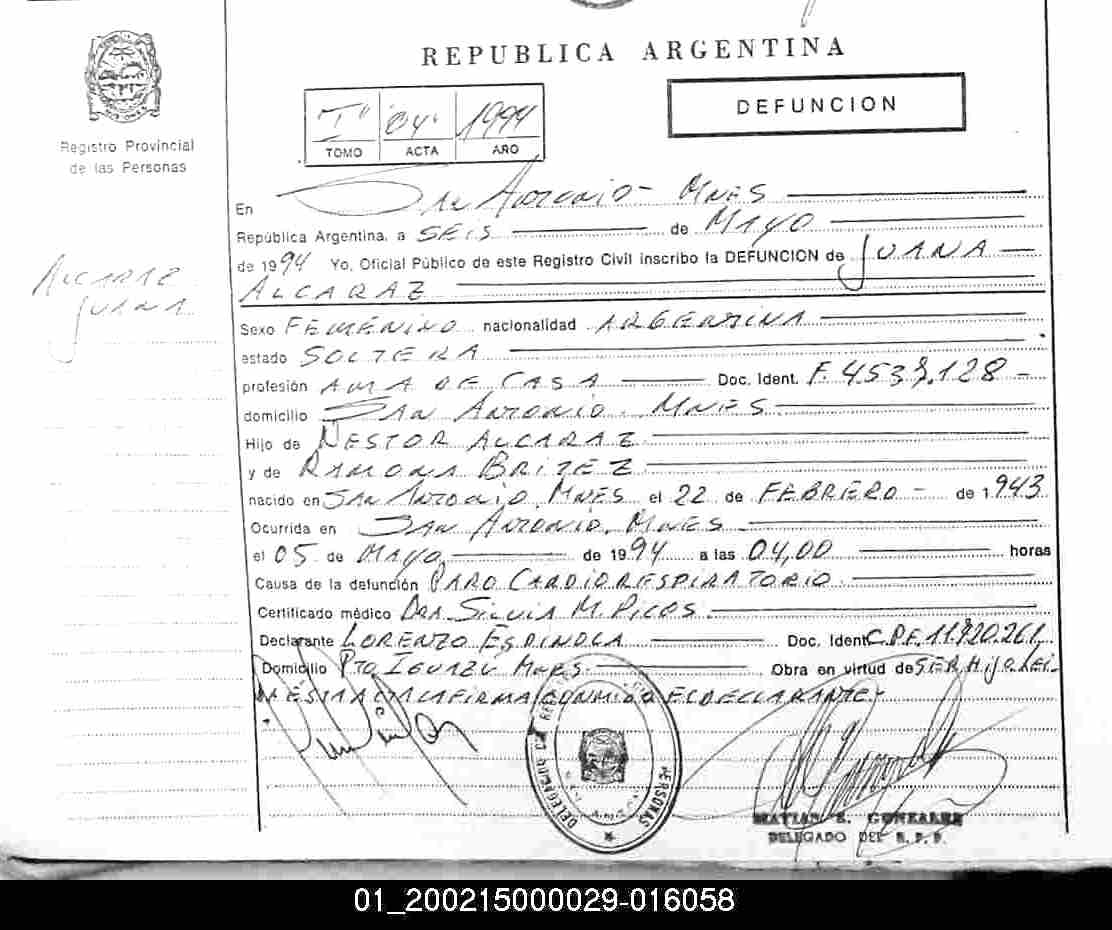 REPUBLICA ARGENTINA
DEFUNCION
Registro Provincial
de las Personas
"I" 04 1994
TOMO ACTA AÑO
En San Antonio - Mnes
República Argentina, a SEIS de MAYO
de 1994 Yo, Oficial Público de este Registro Civil inscribo la DEFUNCION de JUANA
ALCARAZ
ALCARAZ
JUANA
Sexo FEMENINO nacionalidad ARGENTINA
estado SOLTERA
profesión AMA DE CASA Doc. Ident. F. 4.539.128 -
domicilio SAN ANTONIO. MNES
Hijo de NESTOR ALCARAZ
y de RAMONA BRITEZ
nacido en SAN ANTONIO. MNES el 22 de FEBRERO - de 1943
Ocurrida en SAN ANTONIO. MNES
el 05 de MAYO de 1994 a las 04,00 horas
Causa de la defunción PARO CARDIORESPIRATORIO
Certificado médico DRA. SILVIA M. PICOS
Declarante LORENZO ESPINOLA Doc. Ident.
Domicilio PTO IGUAZU MNES. Obra en virtud de SER HIJO. LEI-
DA ÉSTA ACTA LA FIRMA CONMIGO EL DECLARANTE -
PERSONAS
MATIAS E. GONZALEZ
DELEGADO DEL R. P. P.
01_200215000029-016058